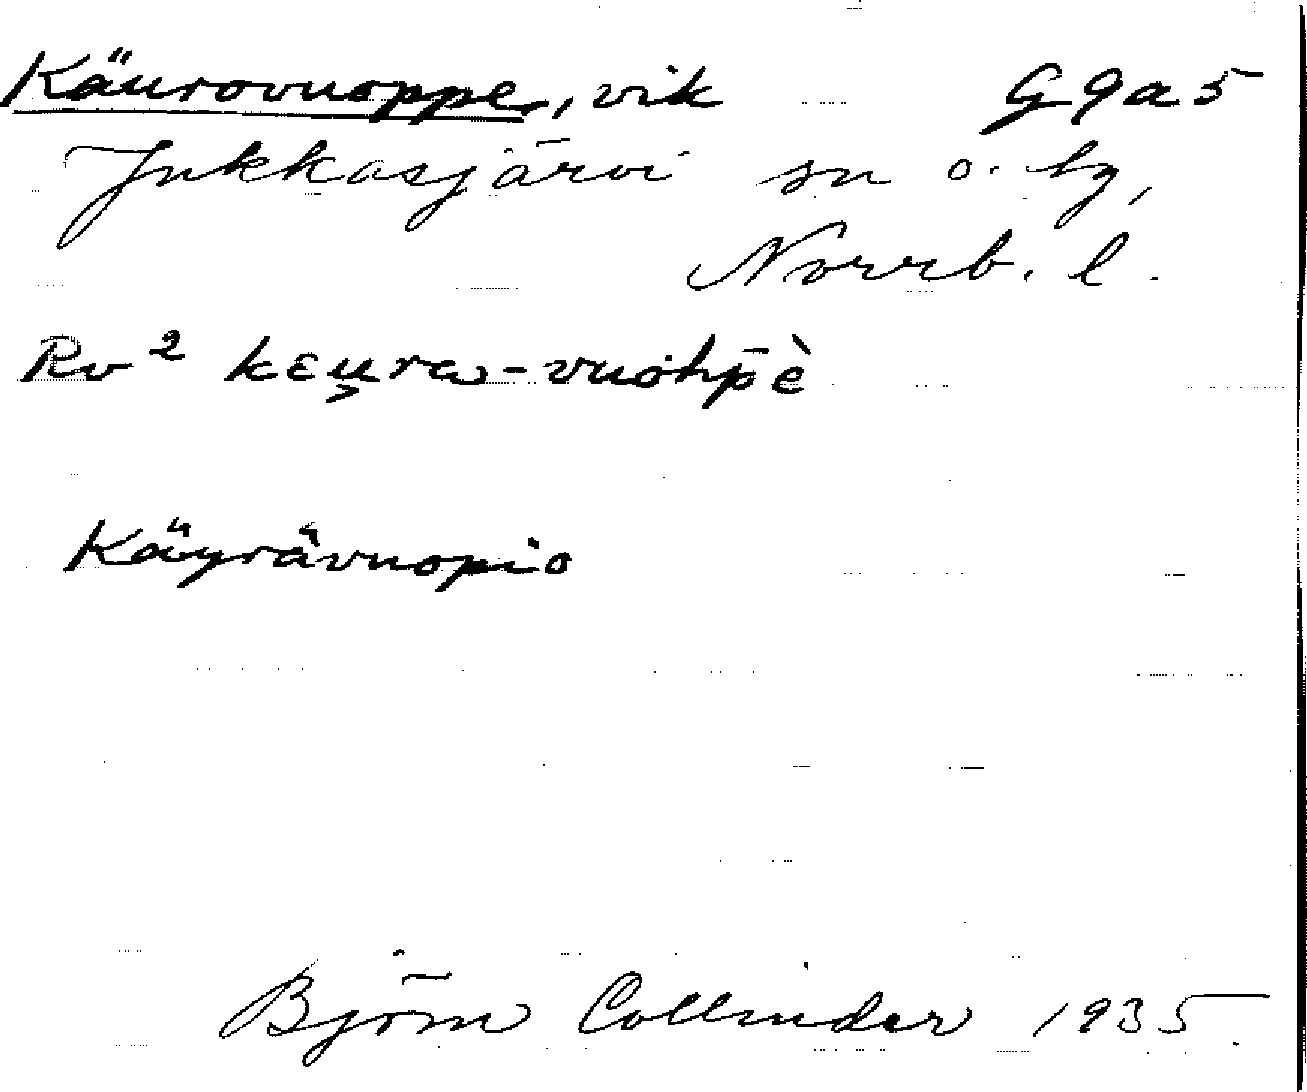 Käurovuoppe, vik G9a5
Jukkasjärvi sn o. tg,
Norrb. l.
Rv² kɛu̯ra-vuoh̄p̄è
Käyrävuopio
Björn Collinder 1935